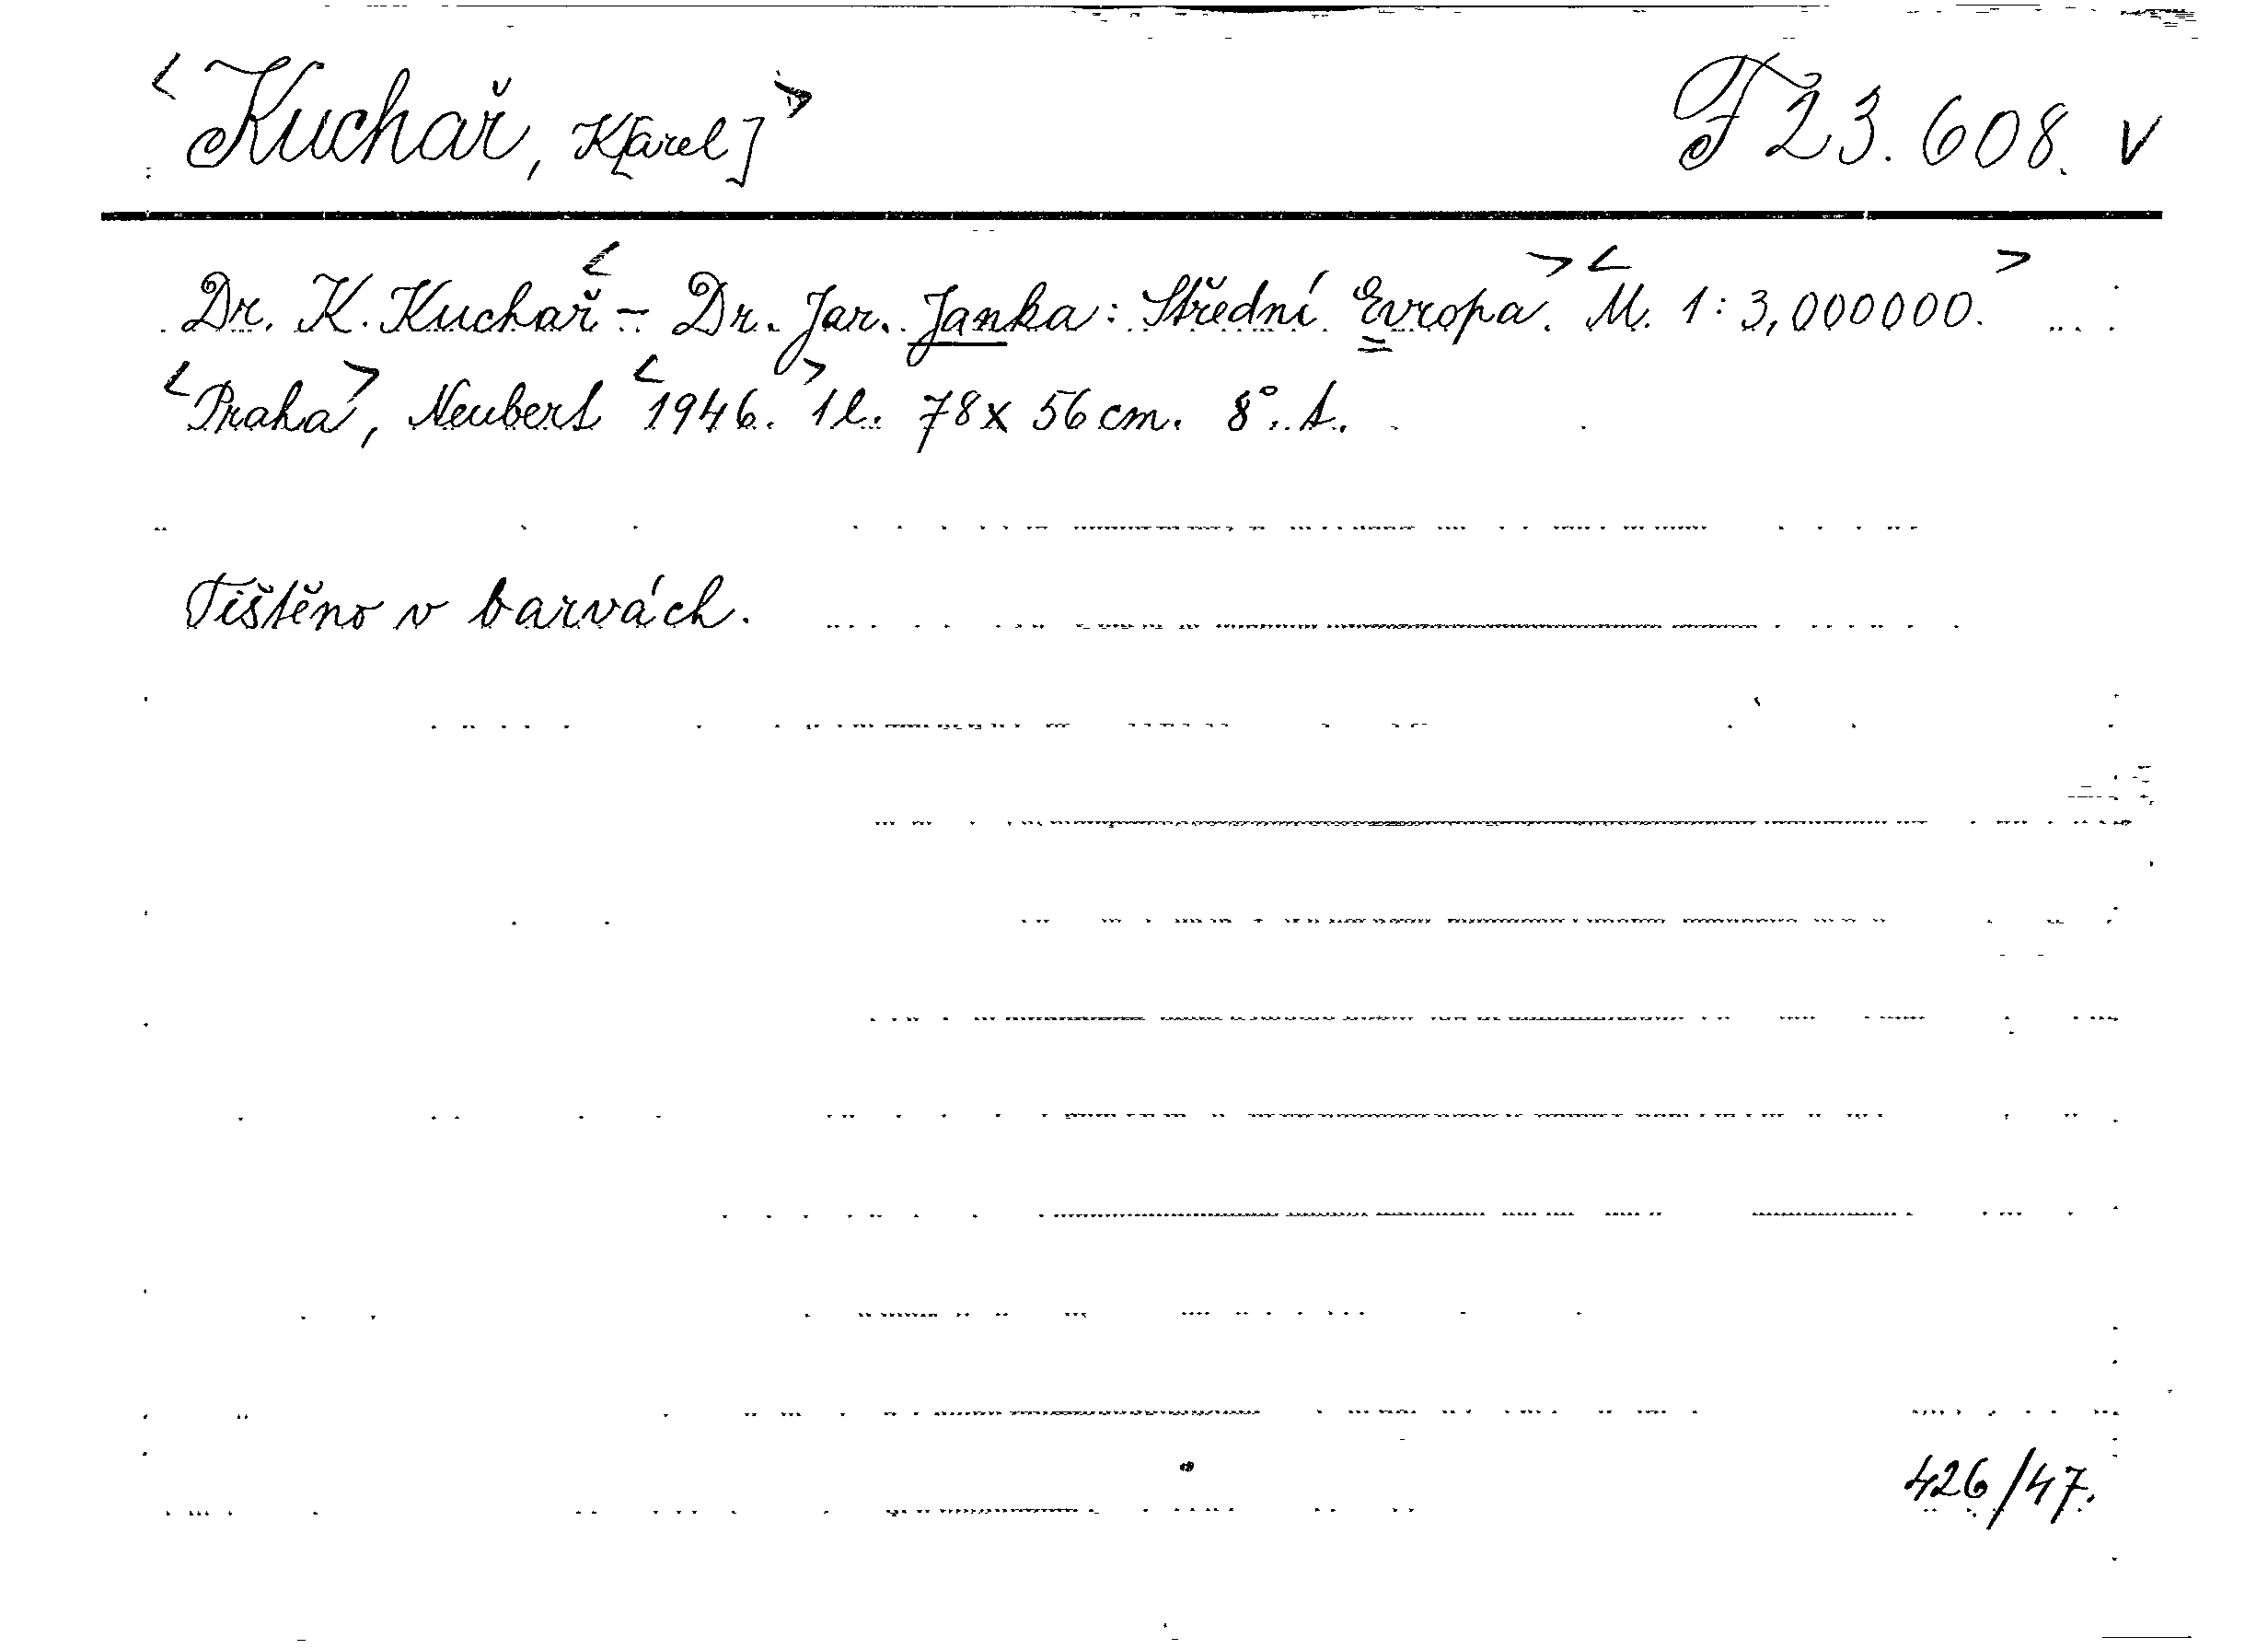 <Kuchař, K[arel]> F 23.608. v
Dr. K. Kuchař <– Dr. Jar. Janka: Střední Evropa.> <M. 1:3,000000.>
<Praha>, Neubert <1946.> 1 l. 78 x 56 cm. 8°. t.
Tištěno v barvách.
426/47.